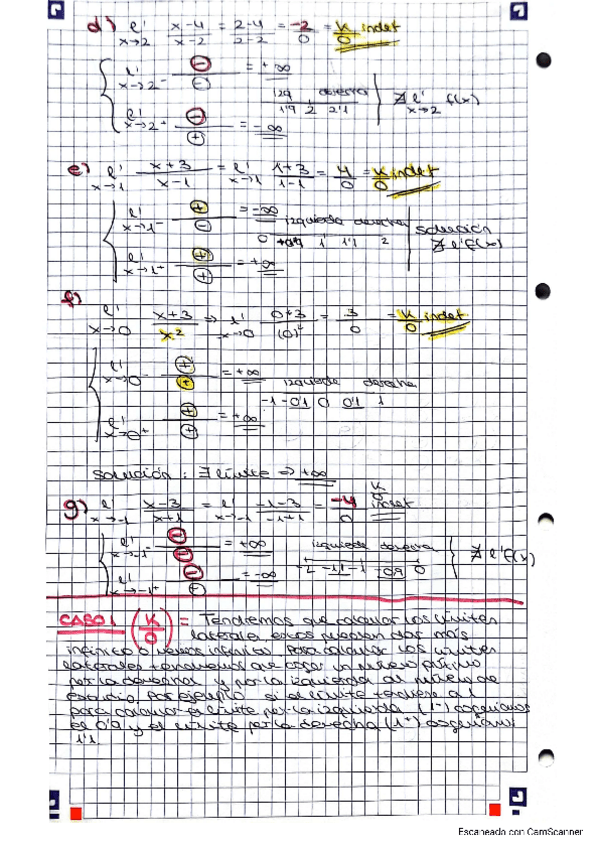 d) l' x→2 x-4/x-2 = 2-4/2-2 = -2/0 = K/0 indet
l' x→2⁻ ⊖/⊖ = +∞
izq derecha
1'9 2 2'1
∄ l' x→2 f(x)
l' x→2⁺ ⊖/⊕ = -∞
e) l' x→1 x+3/x-1 = l' x→1 1+3/1-1 = 4/0 = K/0 indet
l' x→1⁻ ⊕/⊖ = -∞
izquierda derecha
0 0'9 1 1'1 2
solución
∄ l' f(x)
l' x→1⁺ ⊕/⊕ = +∞
f) l' x→0 x+3/x² ⇒ l' x→0 0+3/(0)² = 3/0 = K/0 indet
l' x→0⁻ ⊕/⊕ = +∞
izquierda derecha
-1 -0'1 0 0'1 1
l' x→0⁺ ⊕/⊕ = +∞
solución : ∃ límite ⇒ +∞
g) l' x→-1 x-3/x+1 = l' x→-1 -1-3/-1+1 = -4/0 K/0 indet
l' x→-1⁻ ⊖/⊖ = +∞
izquierda derecha
-2 -1'1 -1 -0'9 0
∄ l' f(x)
l' x→-1⁺ ⊖/⊕ = -∞
CASO 1 (K/0) = Tendremos que calcular los límites
laterales estos pueden dos más
infinito o menos infinito. Para calcular los límites
laterales tendremos que coger un número próximo
por la derecha y por la izquierda al número de
estudio. Por ejemplo si el límite tendiese a 1
para calcular el límite por la izquierda (1⁻) cogeríamos
el 0'9 y el límite por la derecha (1⁺) cogeríamos
1'1.
Escaneado con CamScanner